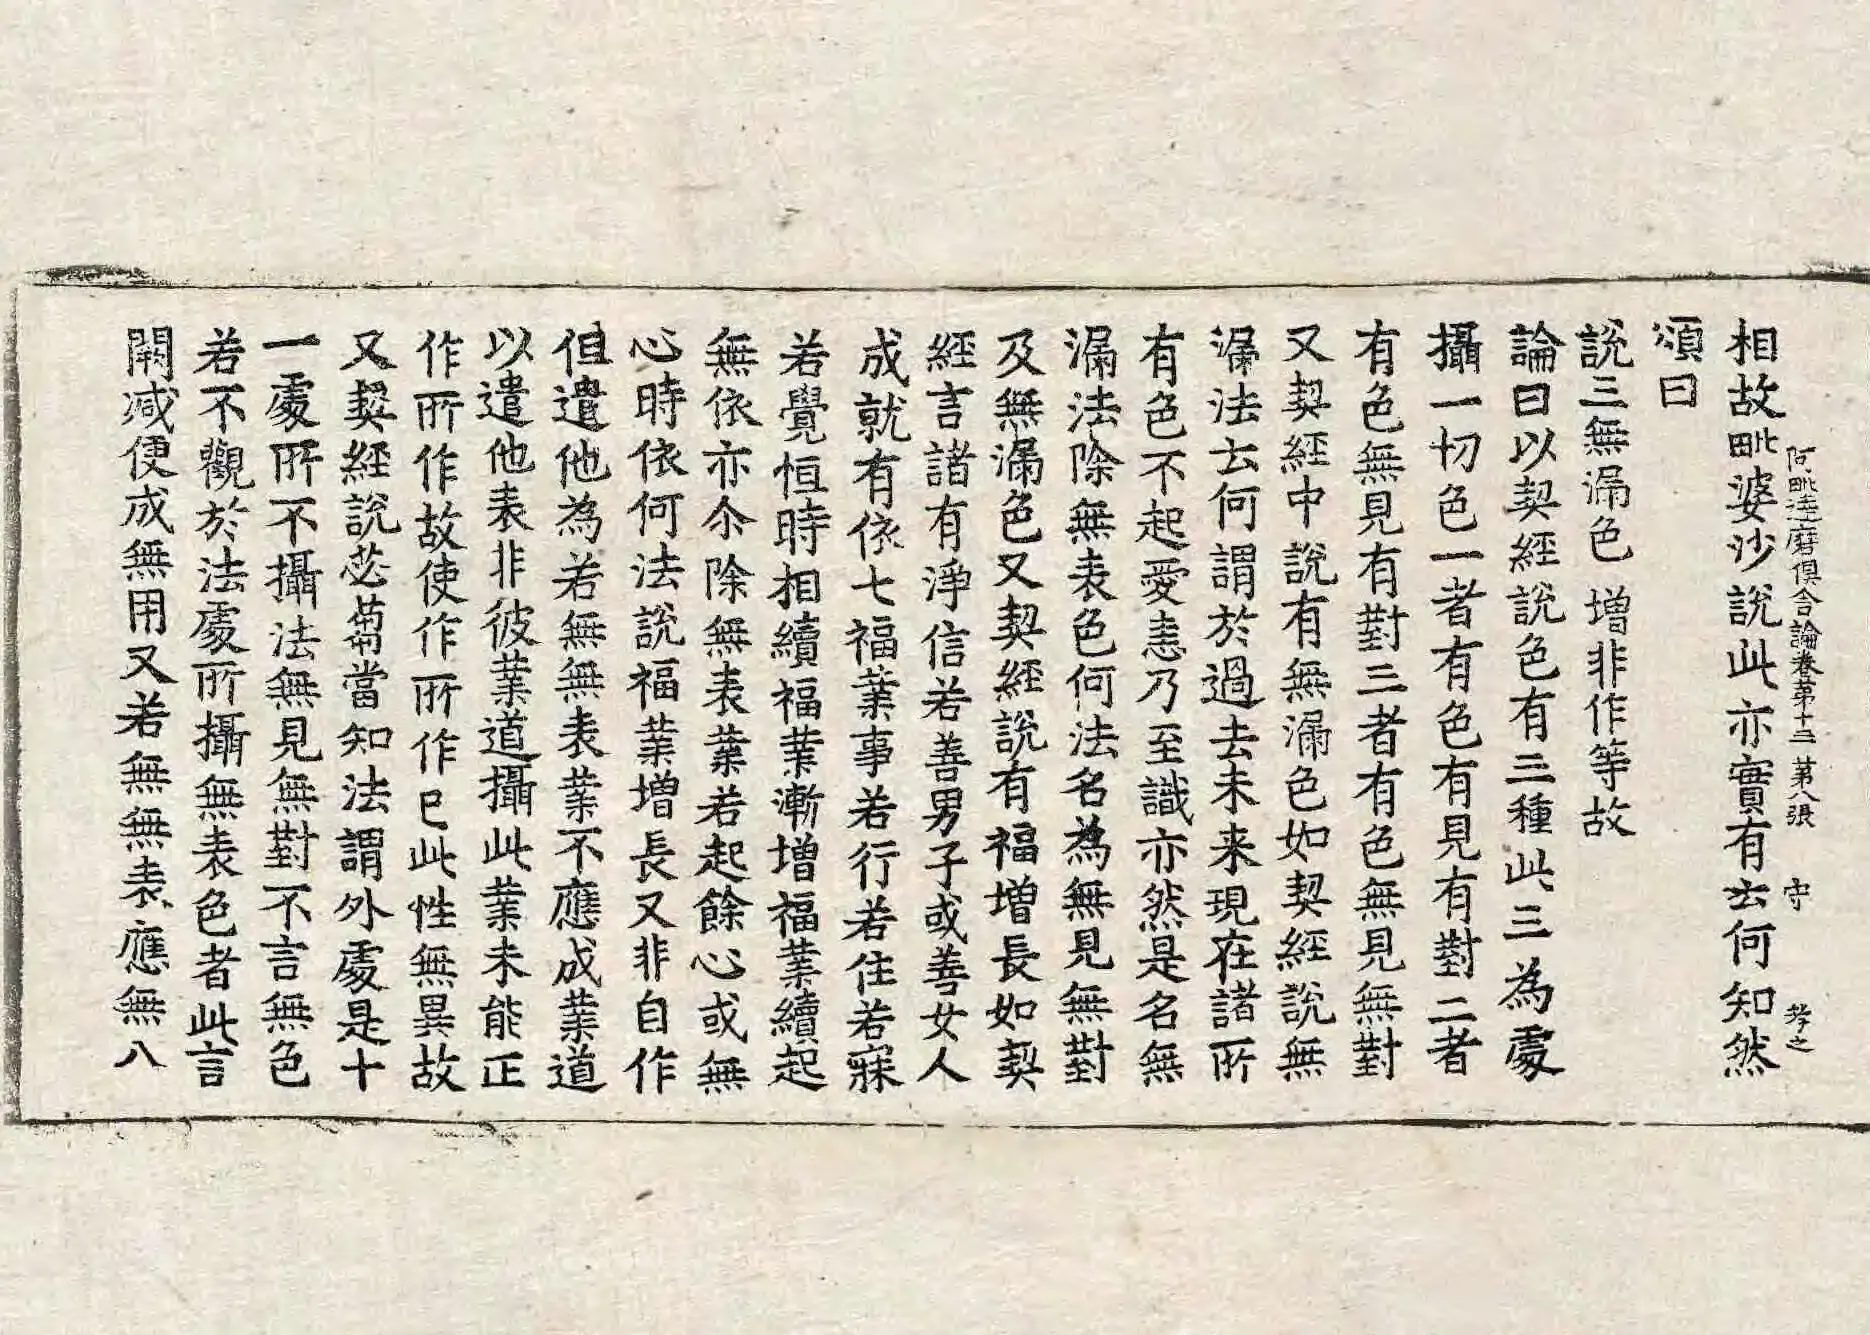 相故毗婆沙說此亦實有云何知然
阿毗達磨俱舍論卷第十三 第八張 守 孝之
頌曰
說三無漏色 增非作等故
論曰以契經說色有三種此三為處
攝一切色一者有色有見有對二者
有色無見有對三者有色無見無對
又契經中說有無漏色如契經說無
漏法云何謂於過去未来現在諸所
有色不起愛恚乃至識亦然是名無
漏法除無表色何法名為無見無對
及無漏色又契經說有福增長如契
經言諸有淨信若善男子或善女人
成就有依七福業事若行若住若寐
若覺恒時相續福業漸增福業續起
無依亦尒除無表業若起餘心或無
心時依何法說福業增長又非自作
但遣他為若無無表業不應成業道
以遣他表非彼業道攝此業未能正
作所作故使作所作已此性無異故
又契經說苾蒭當知法謂外處是十
一處所不攝法無見無對不言無色
若不觀於法處所攝無表色者此言
闕减便成無用又若無無表應無八